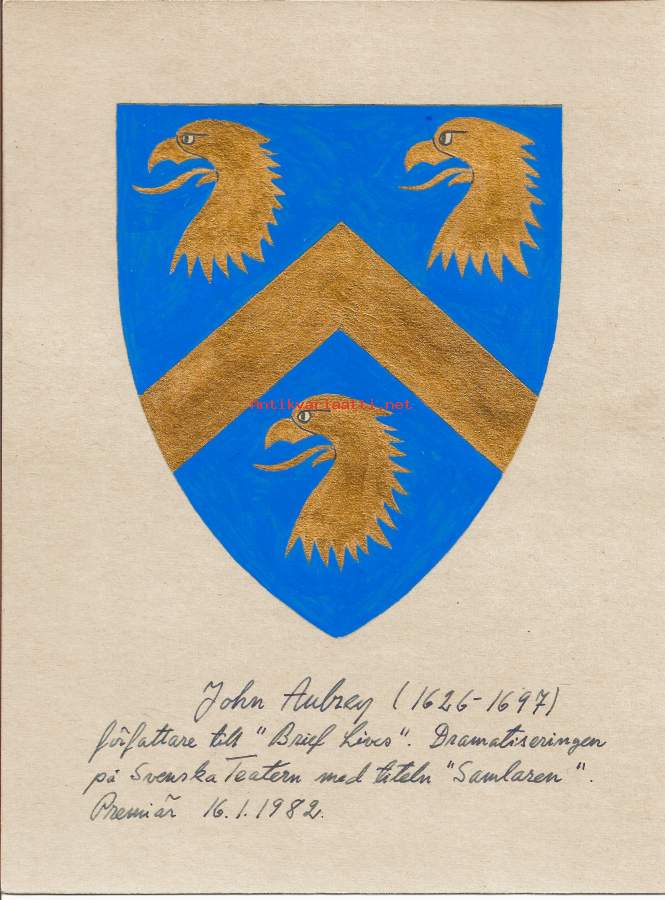 Antikvariaatti.net
John Aubrey (1626-1697)
författare till "Brief Lives". Dramatiseringen
på Svenska Teatern med titeln "Samlaren".
Premiär 16.1.1982.